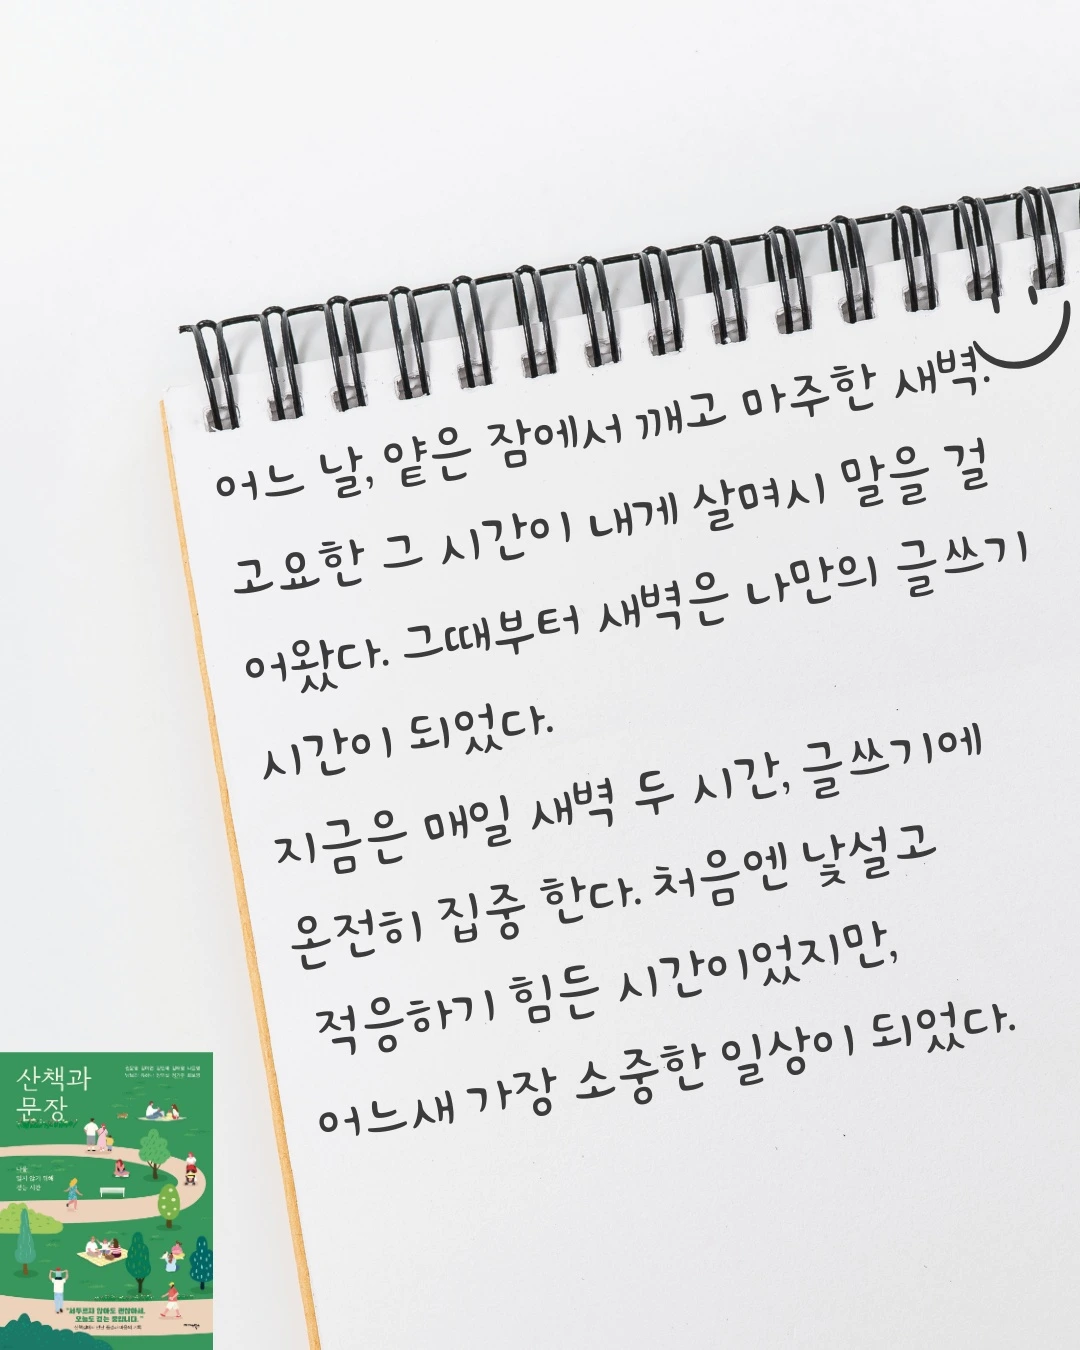 어느 날, 얕은 잠에서 깨고 마주한 새벽.
고요한 그 시간이 내게 살며시 말을 걸
어왔다. 그때부터 새벽은 나만의 글쓰기
시간이 되었다.
지금은 매일 새벽 두 시간, 글쓰기에
온전히 집중 한다. 처음엔 낯설고
적응하기 힘든 시간이었지만,
어느새 가장 소중한 일상이 되었다.
산책과
문장
나를
잃지 않기 위해
걷는 시간
"서두르지 않아도 괜찮아서,
오늘도 걷는 중입니다."